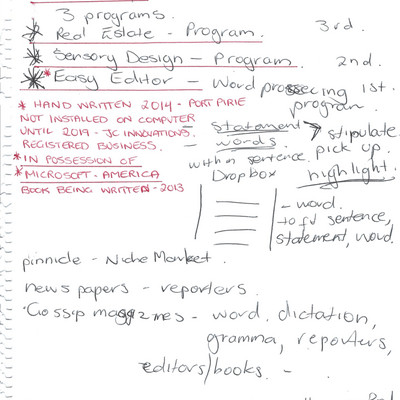 3 programs.
* Real Estate - Program. 3rd.
* Sensory Design - Program. 2nd.
* Easy Editor - Word prossecing 1st. program.
* HAND WRITTEN 2014 - PORT PIRIE
NOT INSTALLED ON COMPUTER
UNTIL 2019 - JC INNOVATIONS.
REGISTERED BUSINESS.
* IN POSSESSION OF
* MICROSOFT - AMERICA
BOOK BEING WRITTEN - 2013
- statement → stipulate
- words. pick up.
within sentence. highlight.
Dropbox
- word.
sentence,
statement, word.
pinnicle - Niche Market.
news papers - reporters.
Gossip magazines - word, dictation,
gramma, reporters,
editors/books. -